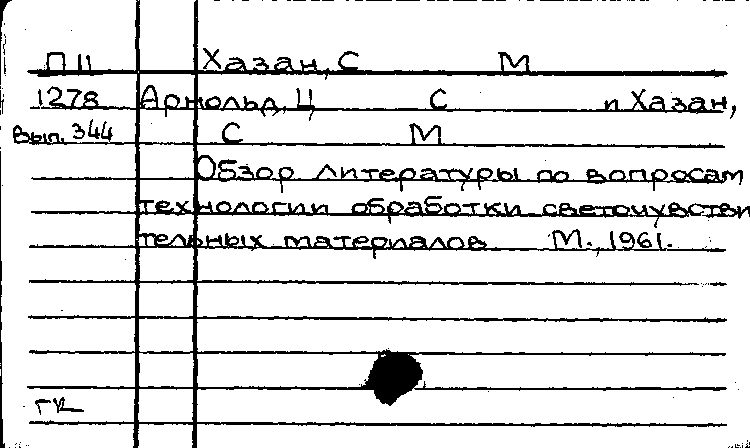 П 11 Хазан, С М
1278 Арнольд, Ц С и Хазан,
Вып. 344 С М
Обзор литературы по вопросам
технологии обработки светочувстви
тельных материалов М., 1961.
ГК